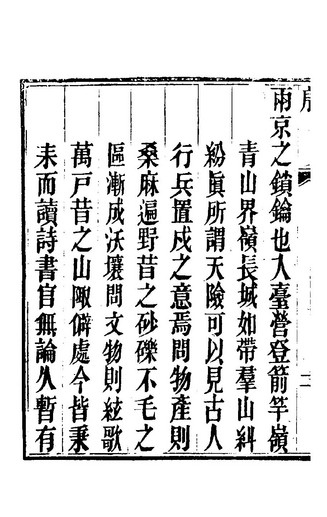 兩京之鎖鑰也入臺營登箭竿嶺
青山界嶺長城如帶羣山糾
紛眞所謂天險可以見古人
行兵置戍之意焉問物產則
桑麻遍野昔之砂礫不毛之
區漸成沃壤問文物則絃歌
萬戶昔之山陬僻處今皆秉
耒而讀詩書官無論久暫有